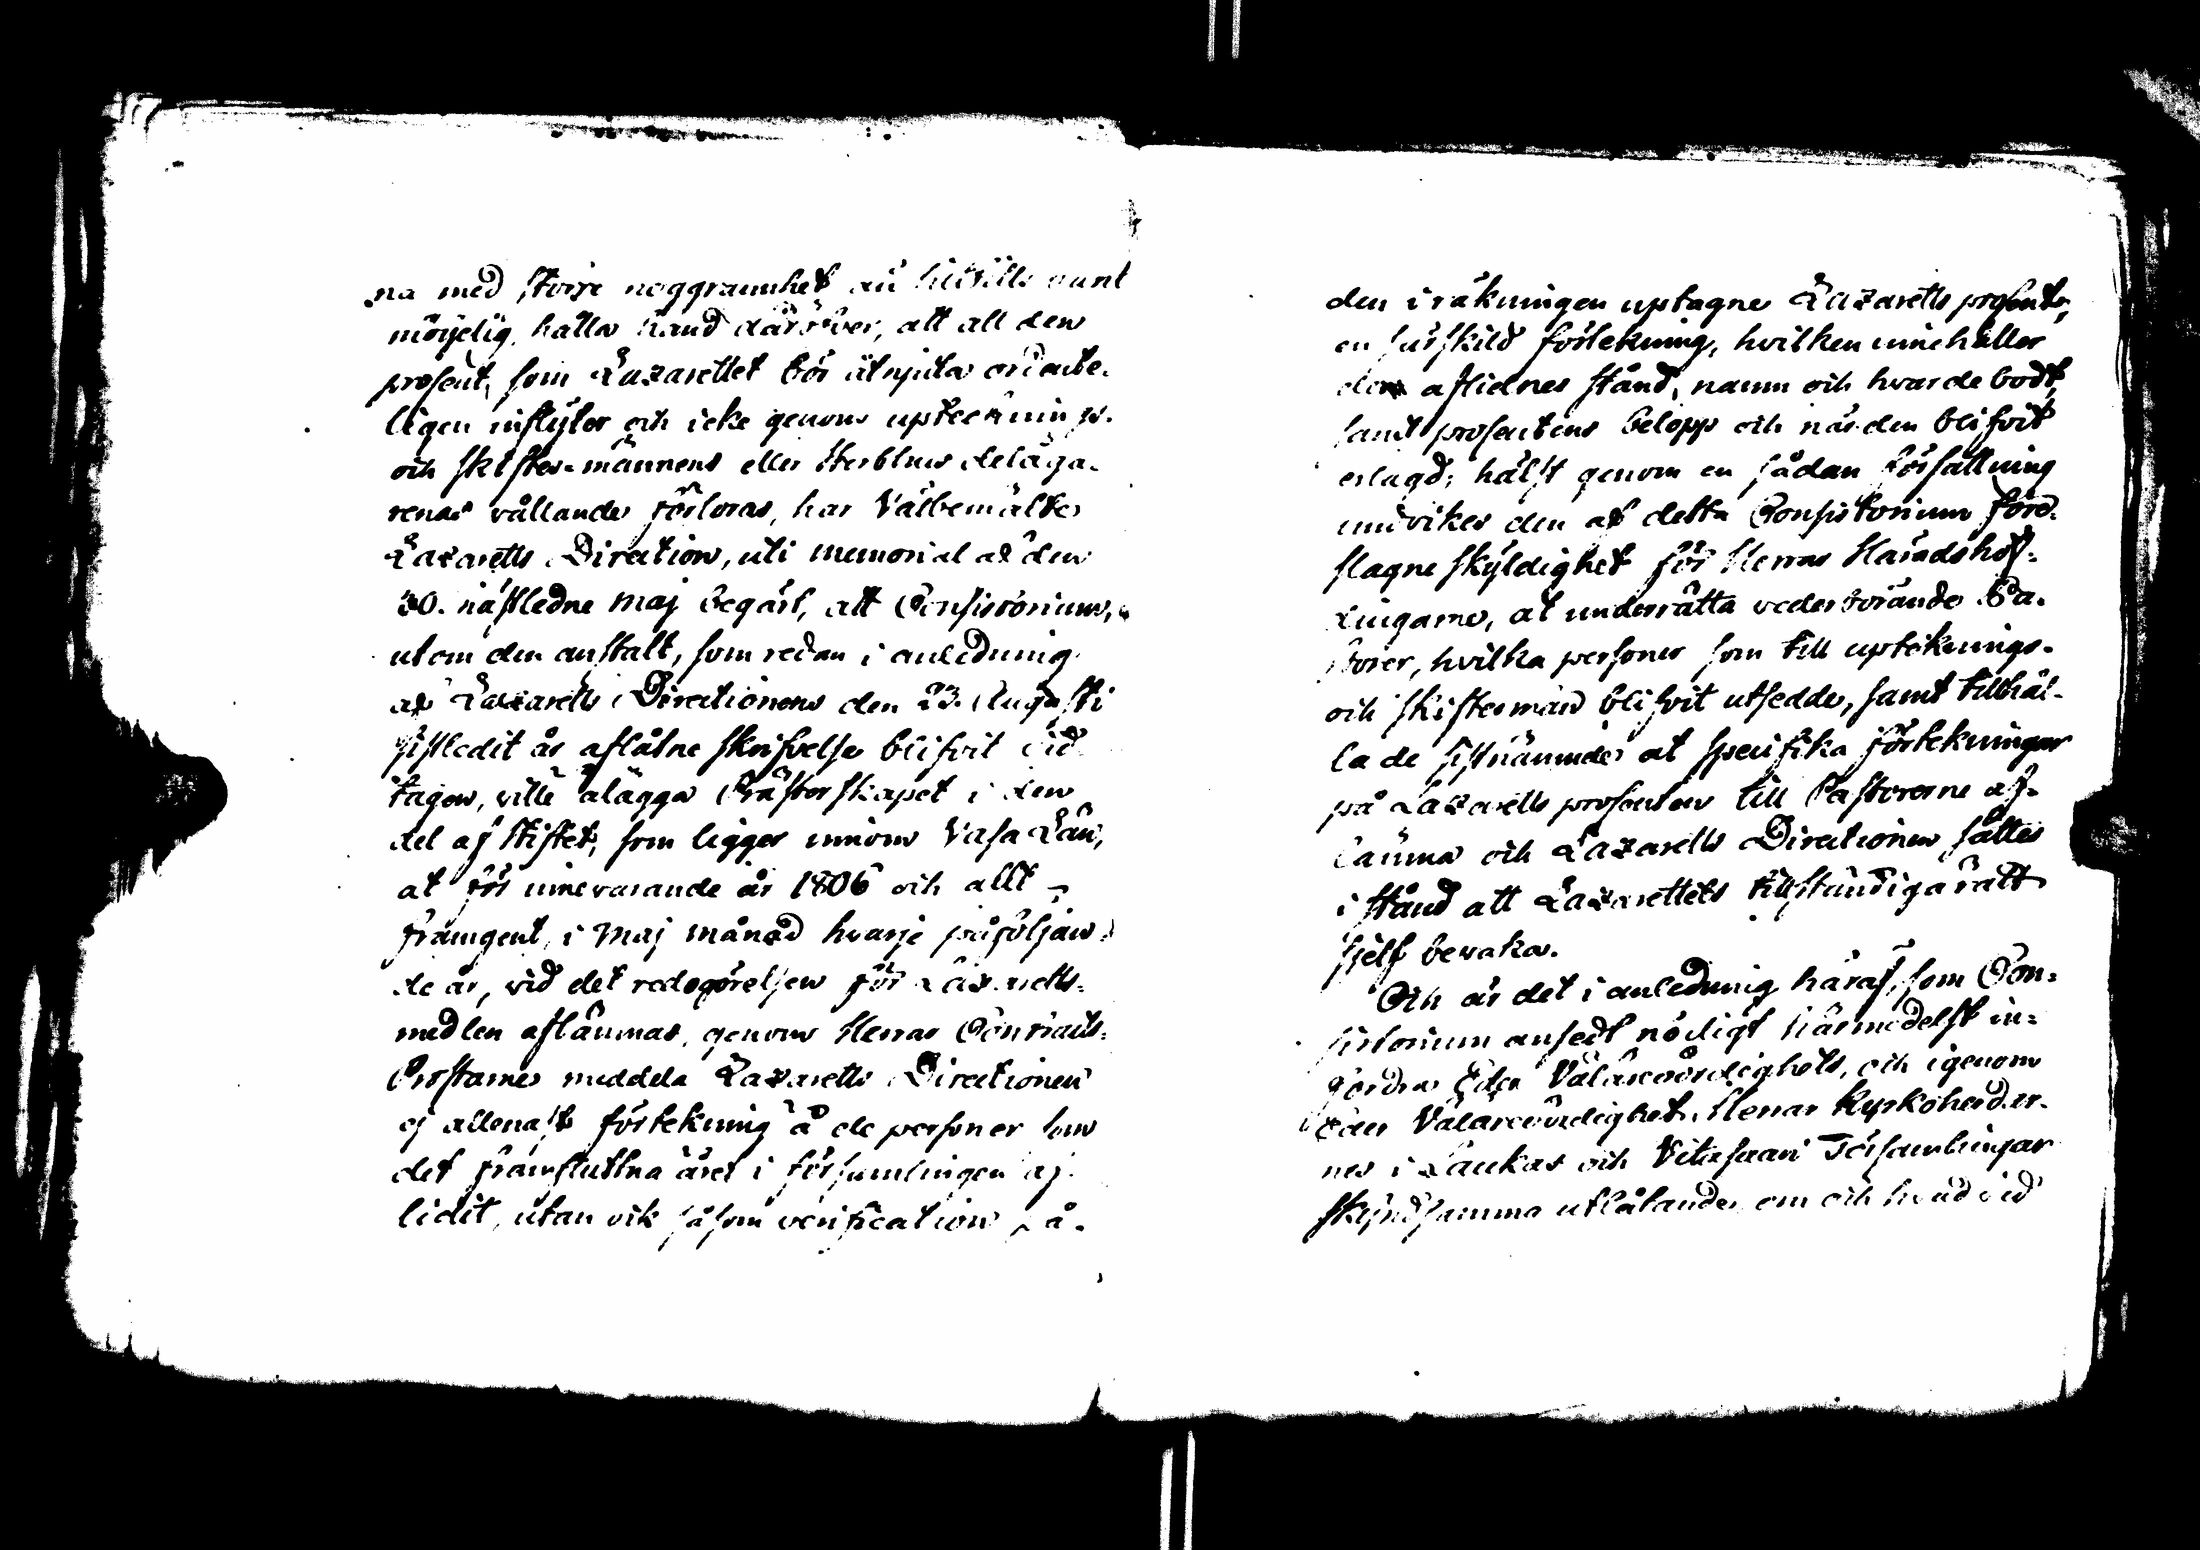 na med större noggrannhet än hitills varit
möyelig, hålla hand däröfver, att all den
prosent, som Lazarettet bör åtnjuta ordente-
ligen inflyter och icke genom upteknings-
och skiftes-männens eller Sterbhus deläga-
renas vållande förloras, har Välbemälte
Lazaretts Direction, uti memorial af den
30. nästledne Maj begärt, att Consistorium,
utom den anstalt, som redan i anledning
af Lazaretts Directionens den 23. Augusti
sistledit år aflåtne skrifvelse blifvit vid
tagen, ville ålägga Prästerskapet i den
del af Stiftet, som ligger innom Vasa Län,
at för innevarande år 1806 och allt
framgent, i Maj månad hvarje påföljan-
de år, vid det redogörelsen för Lazaretts-
medlen aflämnas, genom Herrar Contracts-
Prostarne meddela Lazaretts Directionen
ej allenast förtekning å de personer som
det framflutna året i församlingen af-
lidit, utan ock såsom verification på-
den i räkningen uptagne Lazaretts prosent,
en särskild förtekning, hvilken innehåller
den aflidnes stånd, namn och hvar de bodt,
samt prosentens belopp och när den blifvit
erlagd; hälst genom en sådan författning
undvikes den af detta Consistorium före-
slagne skyldighet för Herrar Häradshöf-
dingarne, at underrätta vederbörande Pa-
storer, hvilka personer som till upteknings-
och skiftesmän blifvit utsedde, samt tillhål-
la de sistnämnde at specifika förtekningar
på Lazaretts prosenten till Pastorerne af-
lämna och Lazaretts Directionen sättes
i stånd att Lazarettets tillständiga rätt
sjelf bevaka.
Och är det i anledning häraf, som Con-
sistorium ansedt nödigt härmedelst in-
fordra Eder Välärevördighets, och igenom
Eder Välärevördighet, Herrar Kyrkoherder-
nes i Laukas och Vitasaari Församlingar
skyndsamma utlåtande, om och hvad vid